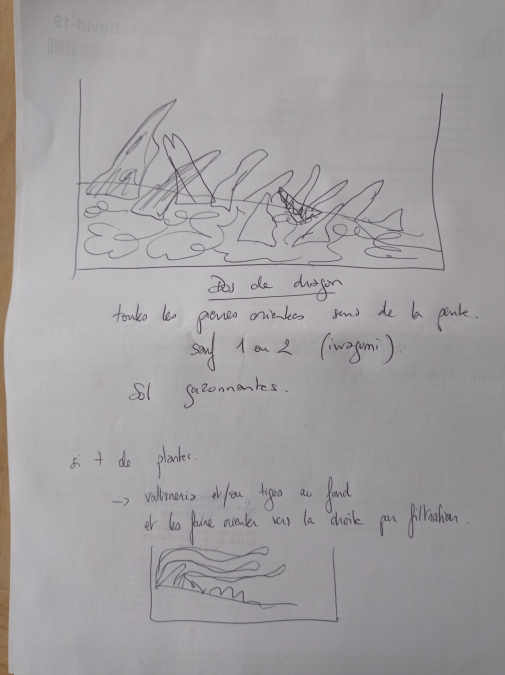 Covid-19
Dos de dragon
toutes les pierres orientées sens de la pente.
sauf 1 ou 2 (iwagumi).
Sol gazonnantes.
si + de plantes.
→ vallisneria et/ou tiges au fond
et les faire orienter vers la droite par filtration.